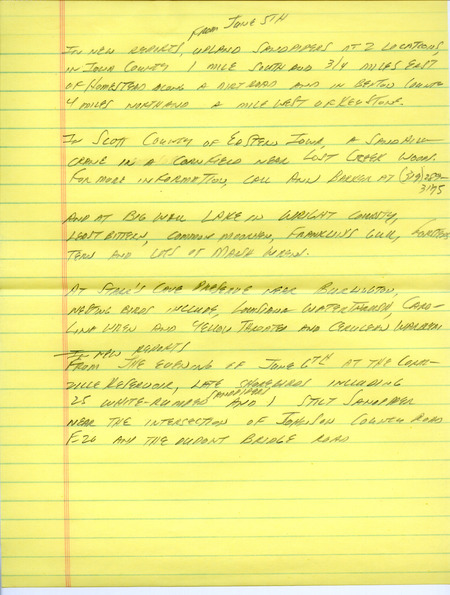 FROM JUNE 5TH
IN NEW REPORTS, UPLAND SANDPIPERS AT 2 LOCATIONS
IN IOWA COUNTY 1 MILE SOUTH AND 3/4 MILES EAST
OF HOMESTEAD ALONG A DIRT ROAD AND IN BENTON COUNTY
4 MILES NORTH AND A MILE WEST OF KEYSTONE.
IN SCOTT COUNTY OF EASTERN IOWA, A SANDHILL
CRANE IN A CORNFIELD NEAR LOST CREEK WOODS.
FOR MORE INFORMATION, CALL ANN BARKER AT (319)
3175
AND AT BIG WALL LAKE IN WRIGHT COUNTY,
LEAST BITTERN, COMMON MOORHEN, FRANKLIN'S GULL, FORSTERS
TERN AND LOTS OF MARSH WREN.
AT STARR'S CAVE PRESERVE NEAR BURLINGTON,
NESTING BIRDS INCLUDE, LOUISIANA WATERTHRUSH, CARO-
LINA WREN AND YELLOW THROATED AND CERULEAN WARBLERS
IN NEW REPORTS
FROM THE EVENING OF JUNE 6TH AT THE CORAL-
VILLE RESERVOIR, LATE SHOREBIRDS INCLUDING
25 WHITE-RUMPED SANDPIPERS AND 1 STILT SANDPIPER
NEAR THE INTERSECTION OF JOHNSON COUNTY ROAD
F-20 AND THE DUPONT BRIDGE ROAD